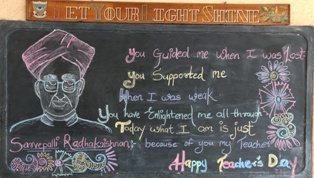 LET YOUR LIGHT SHINE
You Guided me when I was Lost
You Supported me
When I was weak
You have Enlightened me all-through
Today what I am is just
because of you my Teacher
Sarvepalli Radhakrishnan:-
Happy Teacher's Day